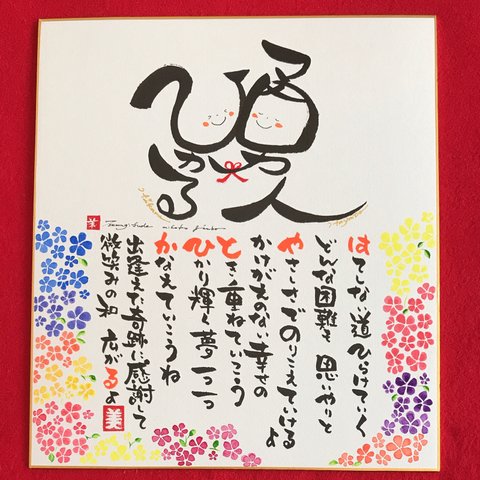 ひかる
Hayato
Hikaru
はてしない道 ひらけていく
どんな困難も 思いやりと
やさしさでのりこえていけるよ
かけがえのない幸せの
とき重ねていこう
ひかり輝く夢 一つ一つ
かなえていこうね
出逢えた奇跡に感謝して
微笑みの和 広がるよ
美